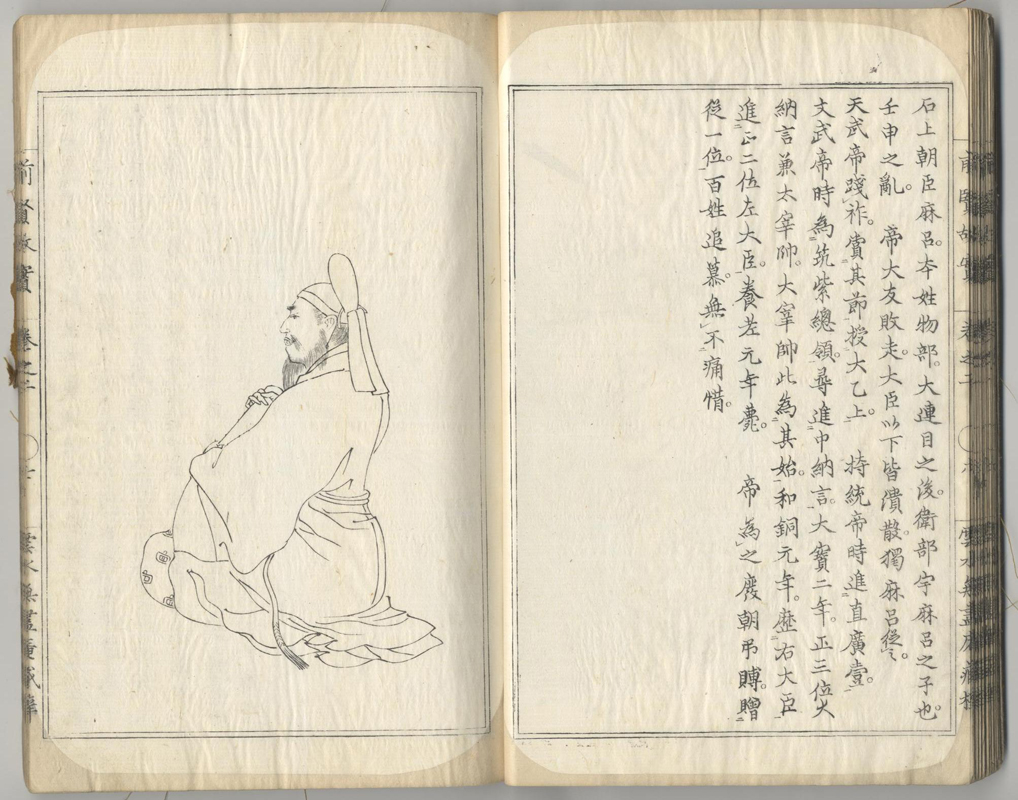 石上朝臣麻呂。本姓物部。大連目之後。衛部宇麻呂之子也。
壬申之亂。　帝大友敗走。大臣以下皆潰散。獨麻呂從之。
天武帝踐祚。賞其節授大乙上。　持統帝時進直廣壹。
文武帝時為筑紫總領。尋進中納言。大寶二年。正三位大
納言兼太宰帥。大宰帥此為其始。和銅元年。歷右大臣
進正二位左大臣。養老元年薨。　帝為之廢朝弔賻。贈
從一位。百姓追慕。無不痛惜。
前賢故實　卷之一